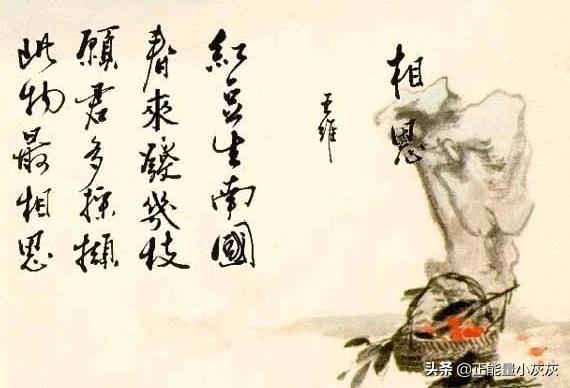 相思
王維
紅豆生南國
春來發幾枝
願君多採擷
此物最相思
头条 @正能量小灰灰